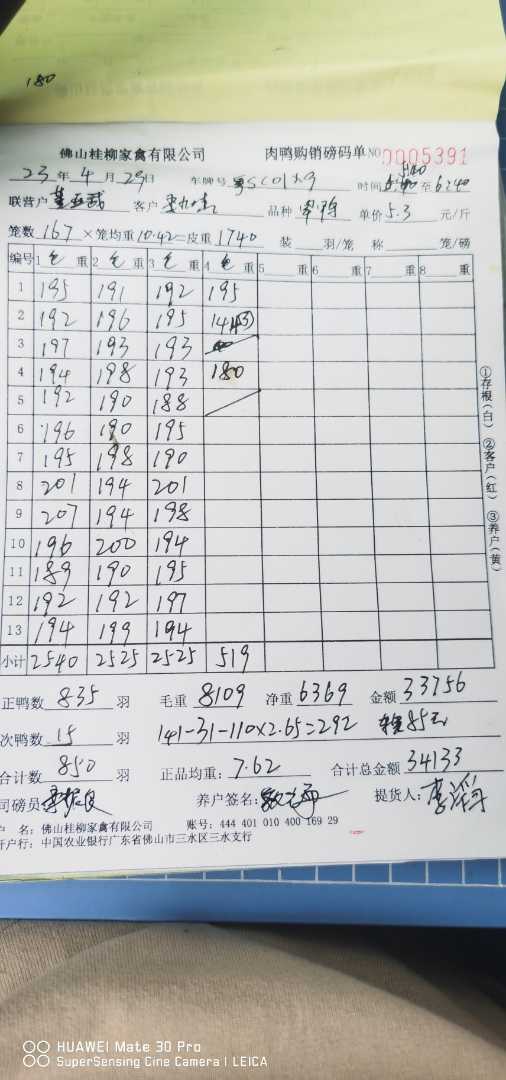 180
佛山桂柳家禽有限公司 肉鸭购销磅码单 NO 0005391
23 年 4 月 29 日 车牌号 时间 至 6:40
联营户 客户 品种 单价 5.3 元/斤
笼数 167 ×笼均重 10.42 =皮重 1740 装 羽/笼 称 笼/磅
编号 1 毛 重 2 毛 重 3 毛 重 4 毛 重 5 重 6 重 7 重 8 重
1 195 191 192 195
2 192 196 195 141(3)
3 197 193 193
4 194 198 193 180
5 192 190 188
6 196 190 195
7 195 198 190
8 201 194 201
9 207 194 198
10 196 200 194
11 189 190 195
12 192 192 197
13 194 199 194
小计 2540 2525 2525 519
①存根(白) ②客户(红) ③养户(黄)
正鸭数 835 羽 毛重 8109 净重 6369 金额 33756
次鸭数 15 羽 141-31-110×2.65=292 85元
合计数 850 羽 正品均重: 7.62 合计总金额 34133
司磅员 养户签名: 提货人:
户 名: 佛山桂柳家禽有限公司 账号: 444 401 010 400 169 29
开户行: 中国农业银行广东省佛山市三水区三水支行
HUAWEI Mate 30 Pro
SuperSensing Cine Camera | LEICA